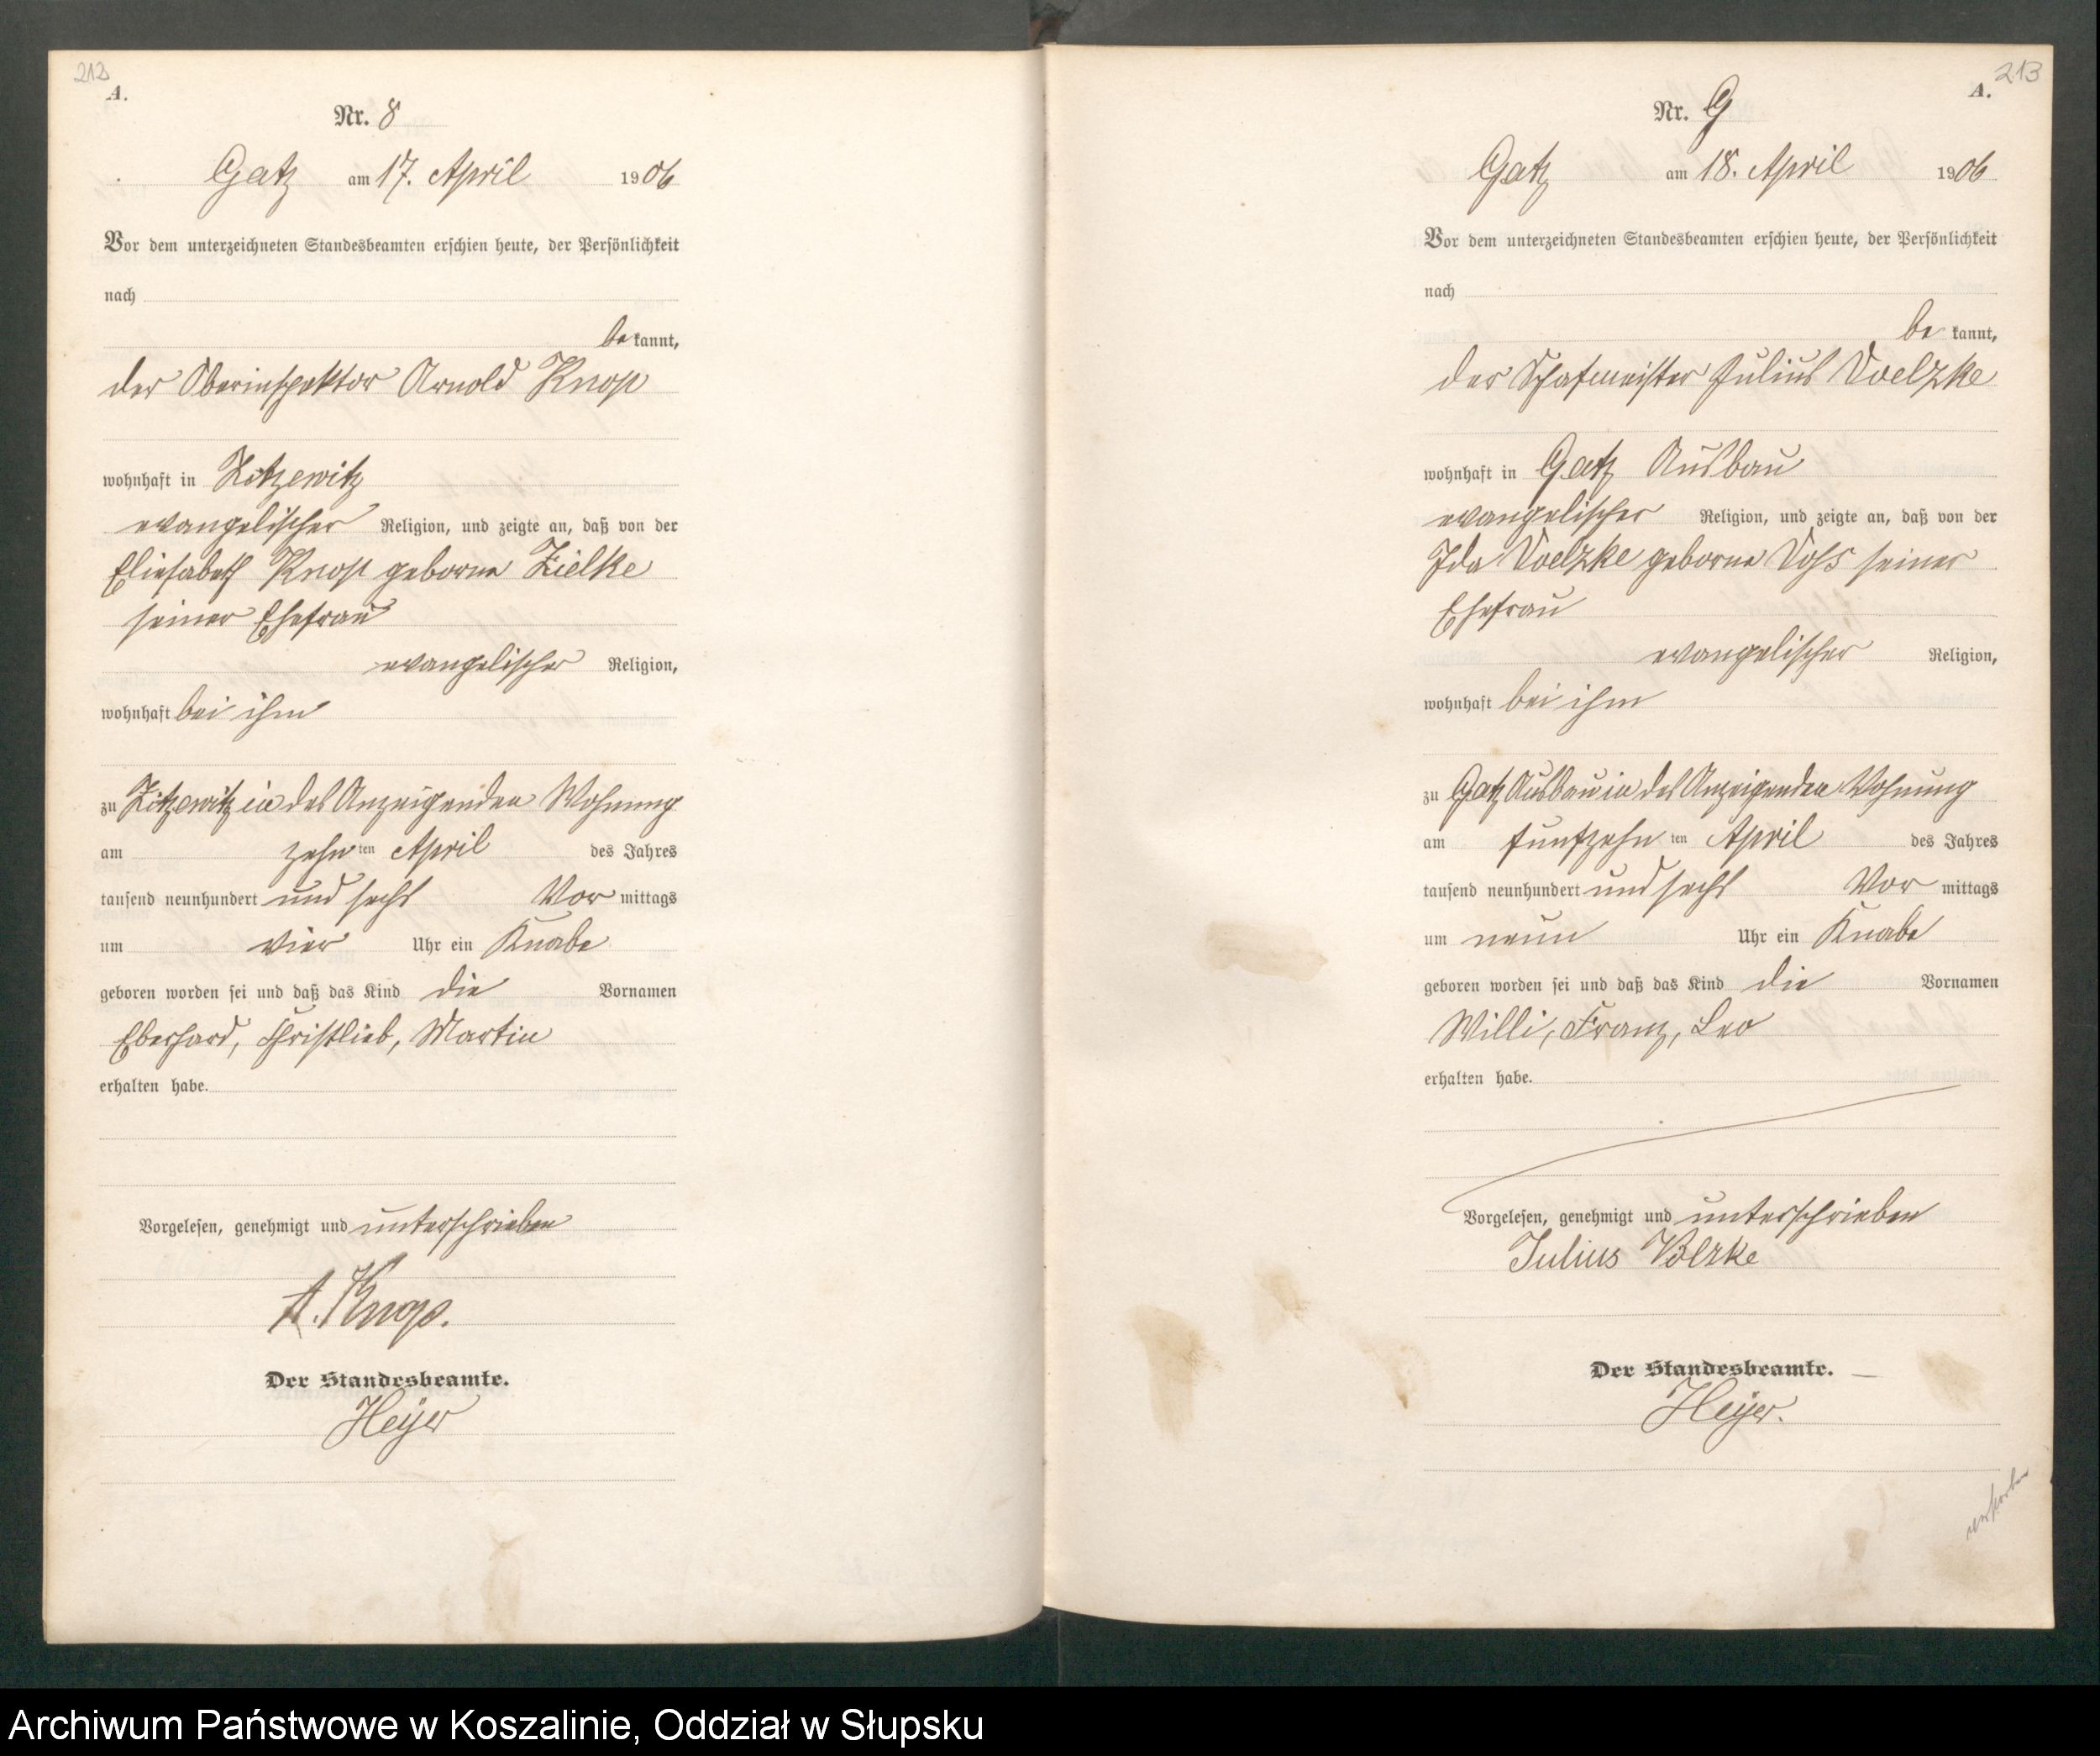 212
A.
Nr. 8
Gatz am 17. April 1906
Vor dem unterzeichneten Standesbeamten erschien heute, der Persönlichkeit
nach
be kannt,
der Oberinspektor Arnold Knop
wohnhaft in Zitzewitz
evangelischer Religion, und zeigte an, daß von der
Eliesabeth Knop geborne Zielke
seiner Ehefrau
evangelischer Religion,
wohnhaft bei ihm
zu Zitzewitz in des Anzeigenden Wohnung
am zehn ten April des Jahres
tausend neunhundert und sechs Vor mittags
um vier Uhr ein Knabe
geboren worden sei und daß das Kind die Vornamen
Eberhard, Christlieb, Martin
erhalten habe.
Vorgelesen, genehmigt und unterschrieben
A. Knop.
Der Standesbeamte.
Heyer
213
A.
Nr. 9
Gatz am 18. April 1906
Vor dem unterzeichneten Standesbeamten erschien heute, der Persönlichkeit
nach
be kannt,
der Schafmeister Julius Voelzke
wohnhaft in Gatz Ausbau
evangelischer Religion, und zeigte an, daß von der
Ida Voelzke geborne Voß seiner
Ehefrau
evangelischer Religion,
wohnhaft bei ihm
zu Gatz Ausbau in des Anzeigenden Wohnung
am fünfzehn ten April des Jahres
tausend neunhundert und sechs Vor mittags
um neun Uhr ein Knabe
geboren worden sei und daß das Kind die Vornamen
Willi, Franz, Leo
erhalten habe.
Vorgelesen, genehmigt und unterschrieben
Julius Völzke
Der Standesbeamte.
Heyer.
Archiwum Państwowe w Koszalinie, Oddział w Słupsku